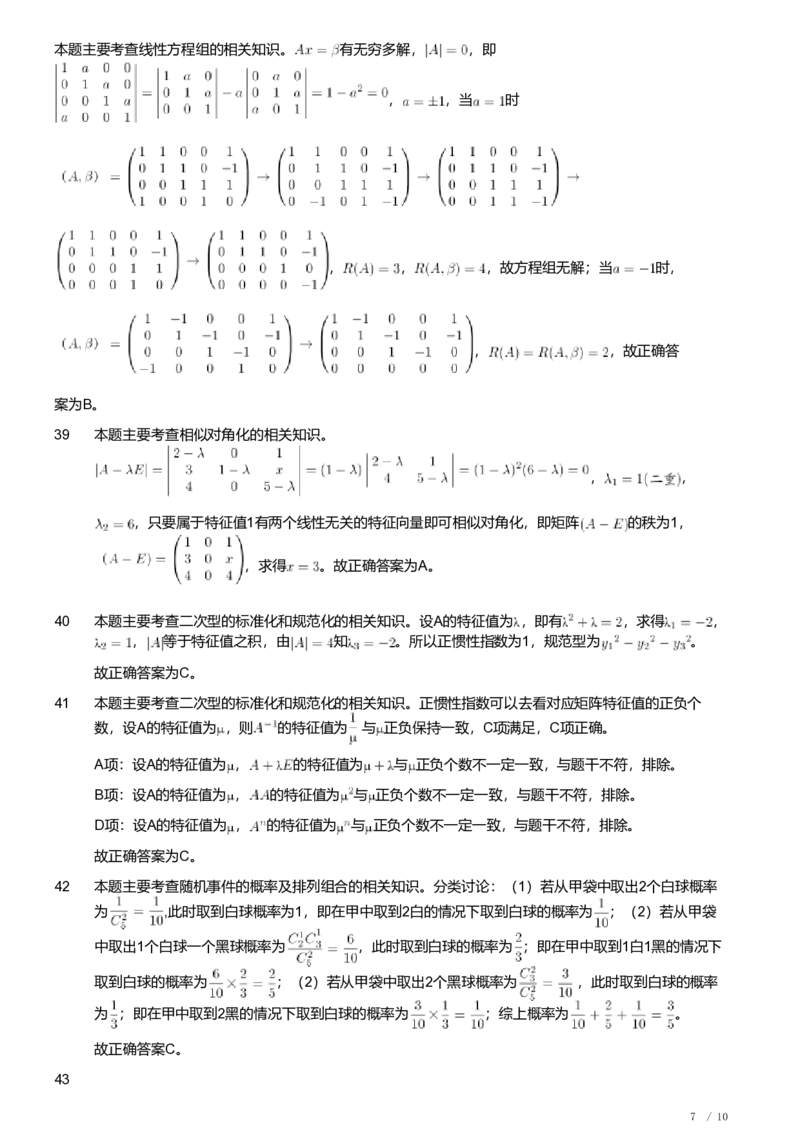 本题主要考查线性方程组的相关知识。Ax = β有无穷多解，|A| = 0，即
| 1 a 0 0 ; 0 1 a 0 ; 0 0 1 a ; a 0 0 1 | = | 1 a 0 ; 0 1 a ; 0 0 1 | − a | 0 a 0 ; 0 1 a ; a 0 1 | = 1 − a² = 0，a = ±1，当a = 1时
(A, β) = ( 1 1 0 0 1 ; 0 1 1 0 −1 ; 0 0 1 1 1 ; 1 0 0 1 0 ) → ( 1 1 0 0 1 ; 0 1 1 0 −1 ; 0 0 1 1 1 ; 0 −1 0 1 −1 ) → ( 1 1 0 0 1 ; 0 1 1 0 −1 ; 0 0 1 1 1 ; 0 0 1 1 −1 ) →
( 1 1 0 0 1 ; 0 1 1 0 −1 ; 0 0 0 1 1 ; 0 0 0 1 0 ) → ( 1 1 0 0 1 ; 0 1 1 0 −1 ; 0 0 0 1 0 ; 0 0 0 0 −1 )，R(A) = 3，R(A, β) = 4，故方程组无解；当a = −1时，
(A, β) = ( 1 −1 0 0 1 ; 0 1 −1 0 −1 ; 0 0 1 −1 0 ; −1 0 0 1 0 ) → ( 1 −1 0 0 1 ; 0 1 −1 0 −1 ; 0 0 1 −1 0 ; 0 0 0 0 0 )，R(A) = R(A, β) = 2，故正确答
案为B。
39 本题主要考查相似对角化的相关知识。
|A − λE| = | 2 − λ 0 1 ; 3 1 − λ x ; 4 0 5 − λ | = (1 − λ) | 2 − λ 1 ; 4 5 − λ | = (1 − λ)²(6 − λ) = 0，λ₁ = 1(二重)，
λ₂ = 6，只要属于特征值1有两个线性无关的特征向量即可相似对角化，即矩阵(A − E)的秩为1，
(A − E) = ( 1 0 1 ; 3 0 x ; 4 0 4 )，求得x = 3。故正确答案为A。
40 本题主要考查二次型的标准化和规范化的相关知识。设A的特征值为λ，即有λ² + λ = 2，求得λ₁ = −2，
λ₂ = 1，|A|等于特征值之积，由|A| = 4知λ₃ = −2。所以正惯性指数为1，规范型为y₁² − y₂² − y₃²。
故正确答案为C。
41 本题主要考查二次型的标准化和规范化的相关知识。正惯性指数可以去看对应矩阵特征值的正负个
数，设A的特征值为μ，则A⁻¹的特征值为1/μ与μ正负保持一致，C项满足，C项正确。
A项：设A的特征值为μ，A + λE的特征值为μ + λ与μ正负个数不一定一致，与题干不符，排除。
B项：设A的特征值为μ，AA的特征值为μ²与μ正负个数不一定一致，与题干不符，排除。
D项：设A的特征值为μ，Aⁿ的特征值为μⁿ与μ正负个数不一定一致，与题干不符，排除。
故正确答案为C。
42 本题主要考查随机事件的概率及排列组合的相关知识。分类讨论：（1）若从甲袋中取出2个白球概率
为1/C₅² = 1/10,此时取到白球概率为1，即在甲中取到2白的情况下取到白球的概率为1/10；（2）若从甲袋
中取出1个白球一个黑球概率为C₂¹C₃¹/C₅² = 6/10，此时取到白球的概率为2/3；即在甲中取到1白1黑的情况下
取到白球的概率为6/10 × 2/3 = 2/5；（2）若从甲袋中取出2个黑球概率为C₃²/C₅² = 3/10，此时取到白球的概率
为1/3；即在甲中取到2黑的情况下取到白球的概率为3/10 × 1/3 = 1/10；综上概率为1/10 + 2/5 + 1/10 = 3/5。
故正确答案C。
43
7 / 10